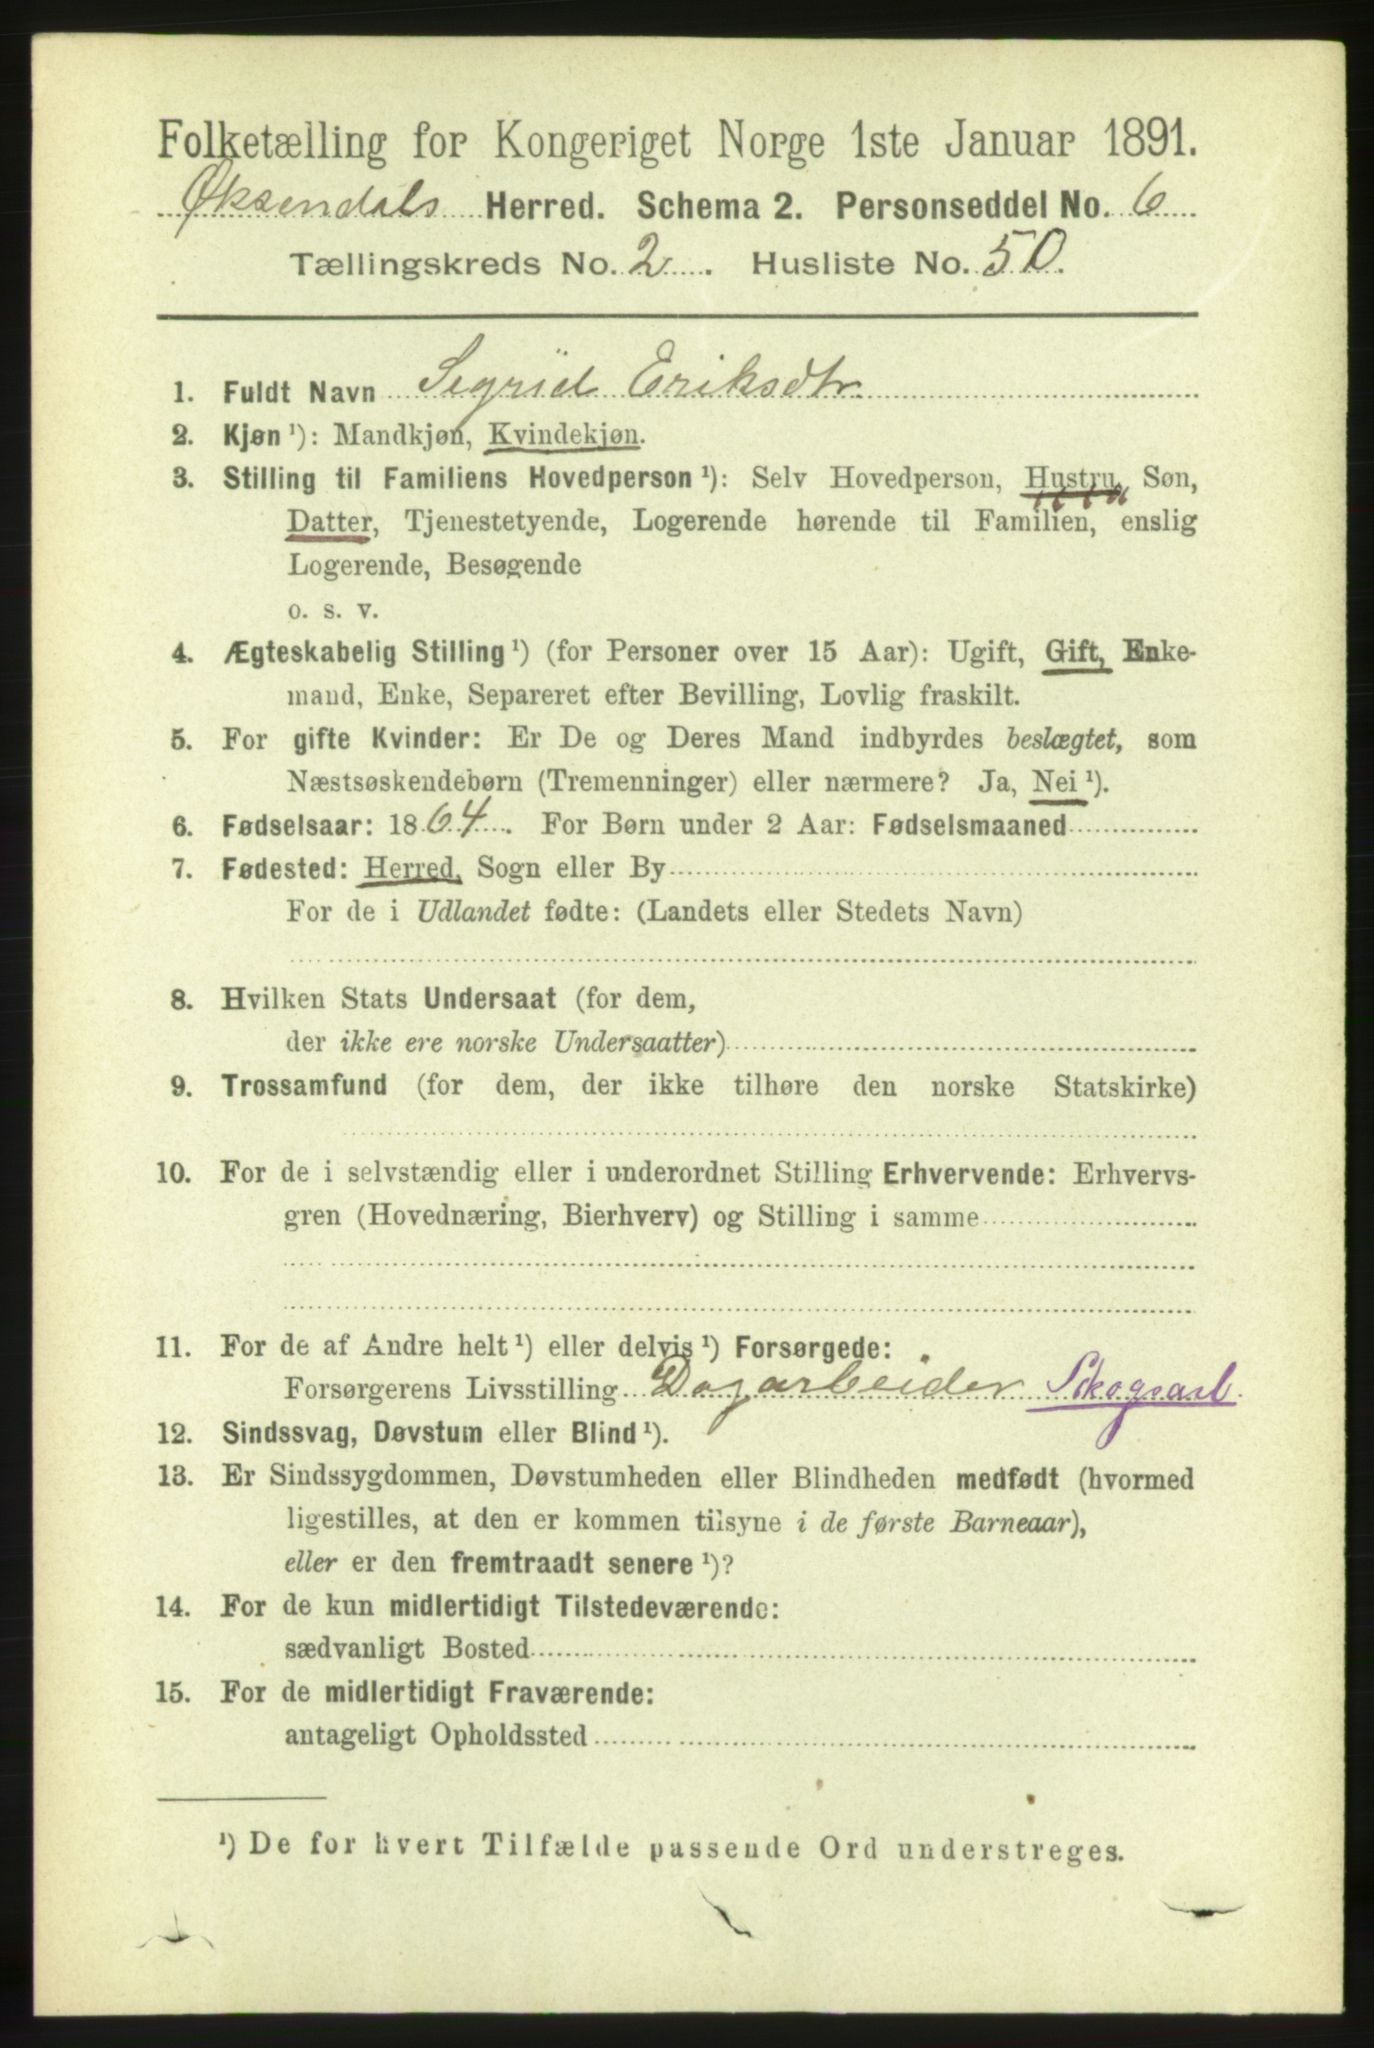 Folketælling for Kongeriget Norge 1ste Januar 1891.
Øksendals Herred. Schema 2. Personseddel No. 6
Tællingskreds No. 2. Husliste No. 50.
1. Fuldt Navn Sigrid Eriksdtr.
2. Kjøn ¹): Mandkjøn, Kvindekjøn.
3. Stilling til Familiens Hovedperson ¹): Selv Hovedperson, Hustru, Søn,
Datter, Tjenestetyende, Logerende hørende til Familien, enslig
Logerende, Besøgende
o. s. v.
4. Ægteskabelig Stilling ¹) (for Personer over 15 Aar): Ugift, Gift, Enke-
mand, Enke, Separeret efter Bevilling, Lovlig fraskilt.
5. For gifte Kvinder: Er De og Deres Mand indbyrdes beslægtet, som
Næstsøskendebørn (Tremenninger) eller nærmere? Ja, Nei ¹).
6. Fødselsaar: 1864. For Børn under 2 Aar: Fødselsmaaned
7. Fødested: Herred, Sogn eller By
For de i Udlandet fødte: (Landets eller Stedets Navn)
8. Hvilken Stats Undersaat (for dem,
der ikke ere norske Undersaatter)
9. Trossamfund (for dem, der ikke tilhøre den norske Statskirke)
10. For de i selvstændig eller i underordnet Stilling Erhvervende: Erhvervs-
gren (Hovednæring, Bierhverv) og Stilling i samme
11. For de af Andre helt ¹) eller delvis ¹) Forsørgede:
Forsørgerens Livsstilling Dagarbeider Skogsarb.
12. Sindssvag, Døvstum eller Blind ¹).
13. Er Sindssygdommen, Døvstumheden eller Blindheden medfødt (hvormed
ligestilles, at den er kommen tilsyne i de første Barneaar),
eller er den fremtraadt senere ¹)?
14. For de kun midlertidigt Tilstedeværende:
sædvanligt Bosted
15. For de midlertidigt Fraværende:
antageligt Opholdssted
¹) De for hvert Tilfælde passende Ord understreges.